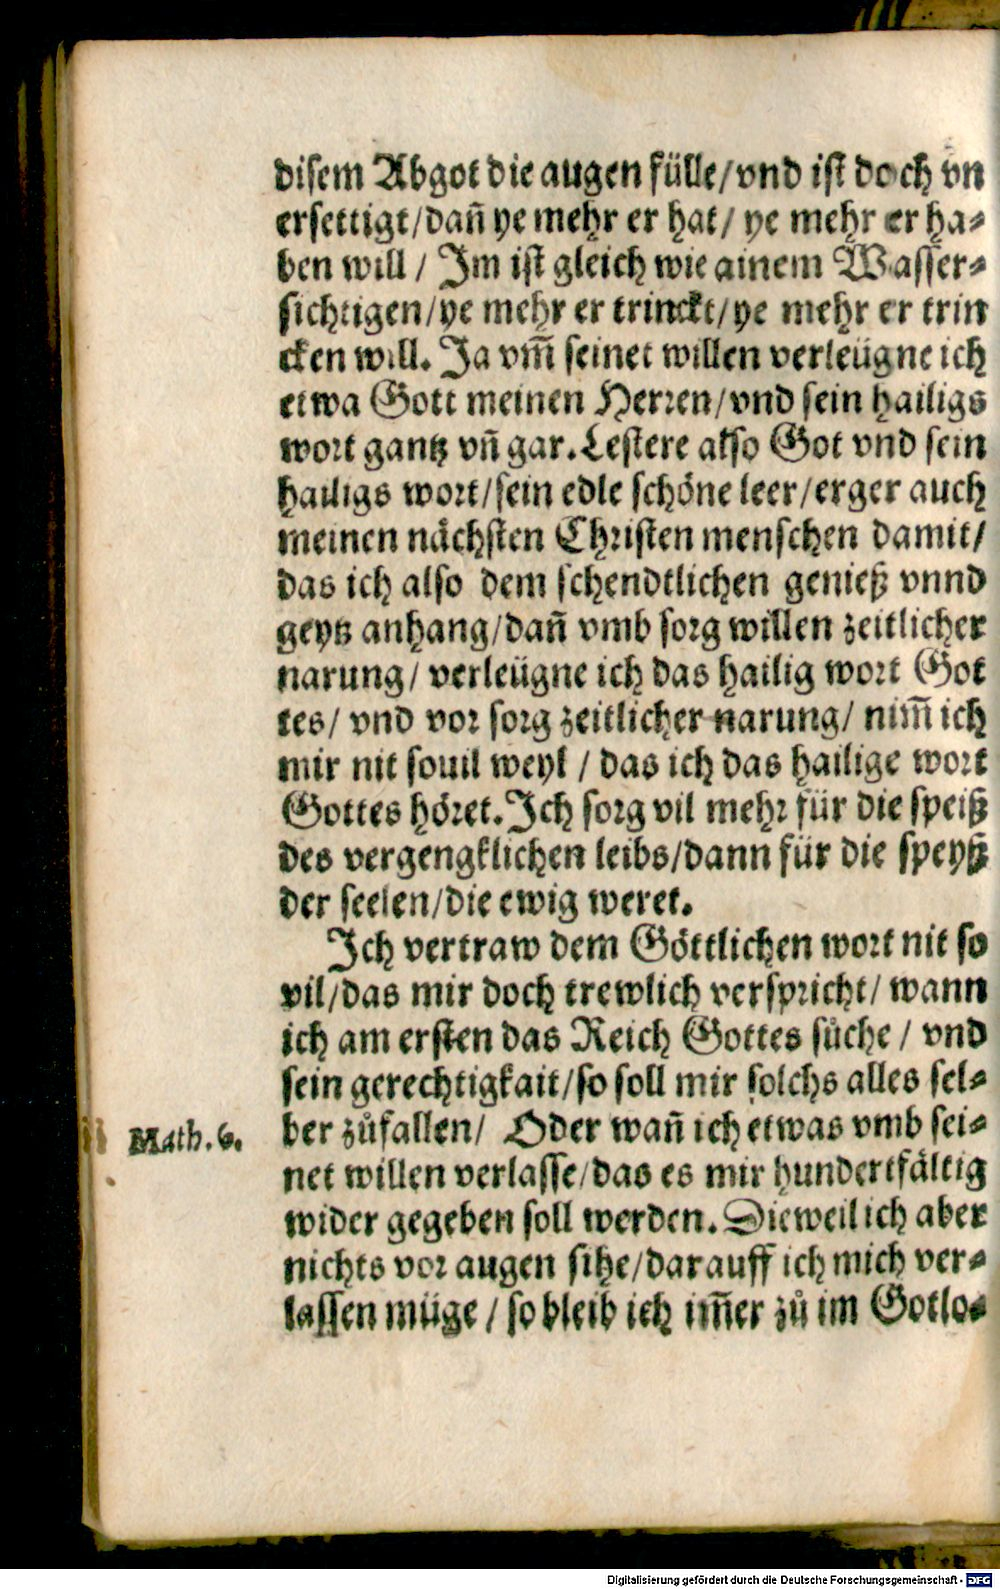 disem Abgot die augen fülle/vnd ist doch vn
ersettigt/dañ ye mehr er hat/ ye mehr er ha⸗
ben will / Im ist gleich wie ainem Wasser⸗
sichtigen/ye mehr er trinckt/ye mehr er trin
cken will. Ja vm̃ seinet willen verleügne ich
etwa Gott meinen Herren/vnd sein hailigs
wort gantz vñ gar. Lestere also Got vnd sein
hailigs wort/sein edle schöne leer/erger auch
meinen nächsten Christen menschen damit/
das ich also dem schendtlichen genieß vnnd
geytz anhang/dañ vmb sorg willen zeitlicher
narung/ verleügne ich das hailig wort Got
tes/ vnd vor sorg zeitlicher narung/ nim̃ ich
mir nit souil weyl / das ich das hailige wort
Gottes höret. Ich sorg vil mehr für die speiß
des vergengklichen leibs/dann für die speyß
der seelen/die ewig weret.
Ich vertraw dem Göttlichen wort nit so
vil/das mir doch trewlich verspricht/ wann
ich am ersten das Reich Gottes sůche / vnd
sein gerechtigkait/so soll mir solchs alles sel⸗
Math. 6.
ber zůfallen/ Oder wañ ich etwas vmb sei⸗
net willen verlasse/das es mir hundertfältig
wider gegeben soll werden. Dieweil ich aber
nichts vor augen sihe/darauff ich mich ver⸗
lassen müge / so bleib ich im̃er zů im Gotlo⸗
Digitalisierung gefördert durch die Deutsche Forschungsgemeinschaft - DFG